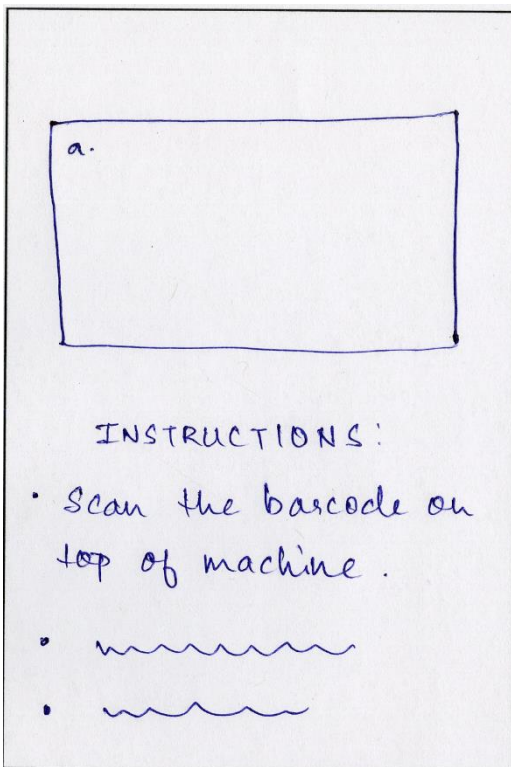 a.
INSTRUCTIONS:
• Scan the barcode on
top of machine.